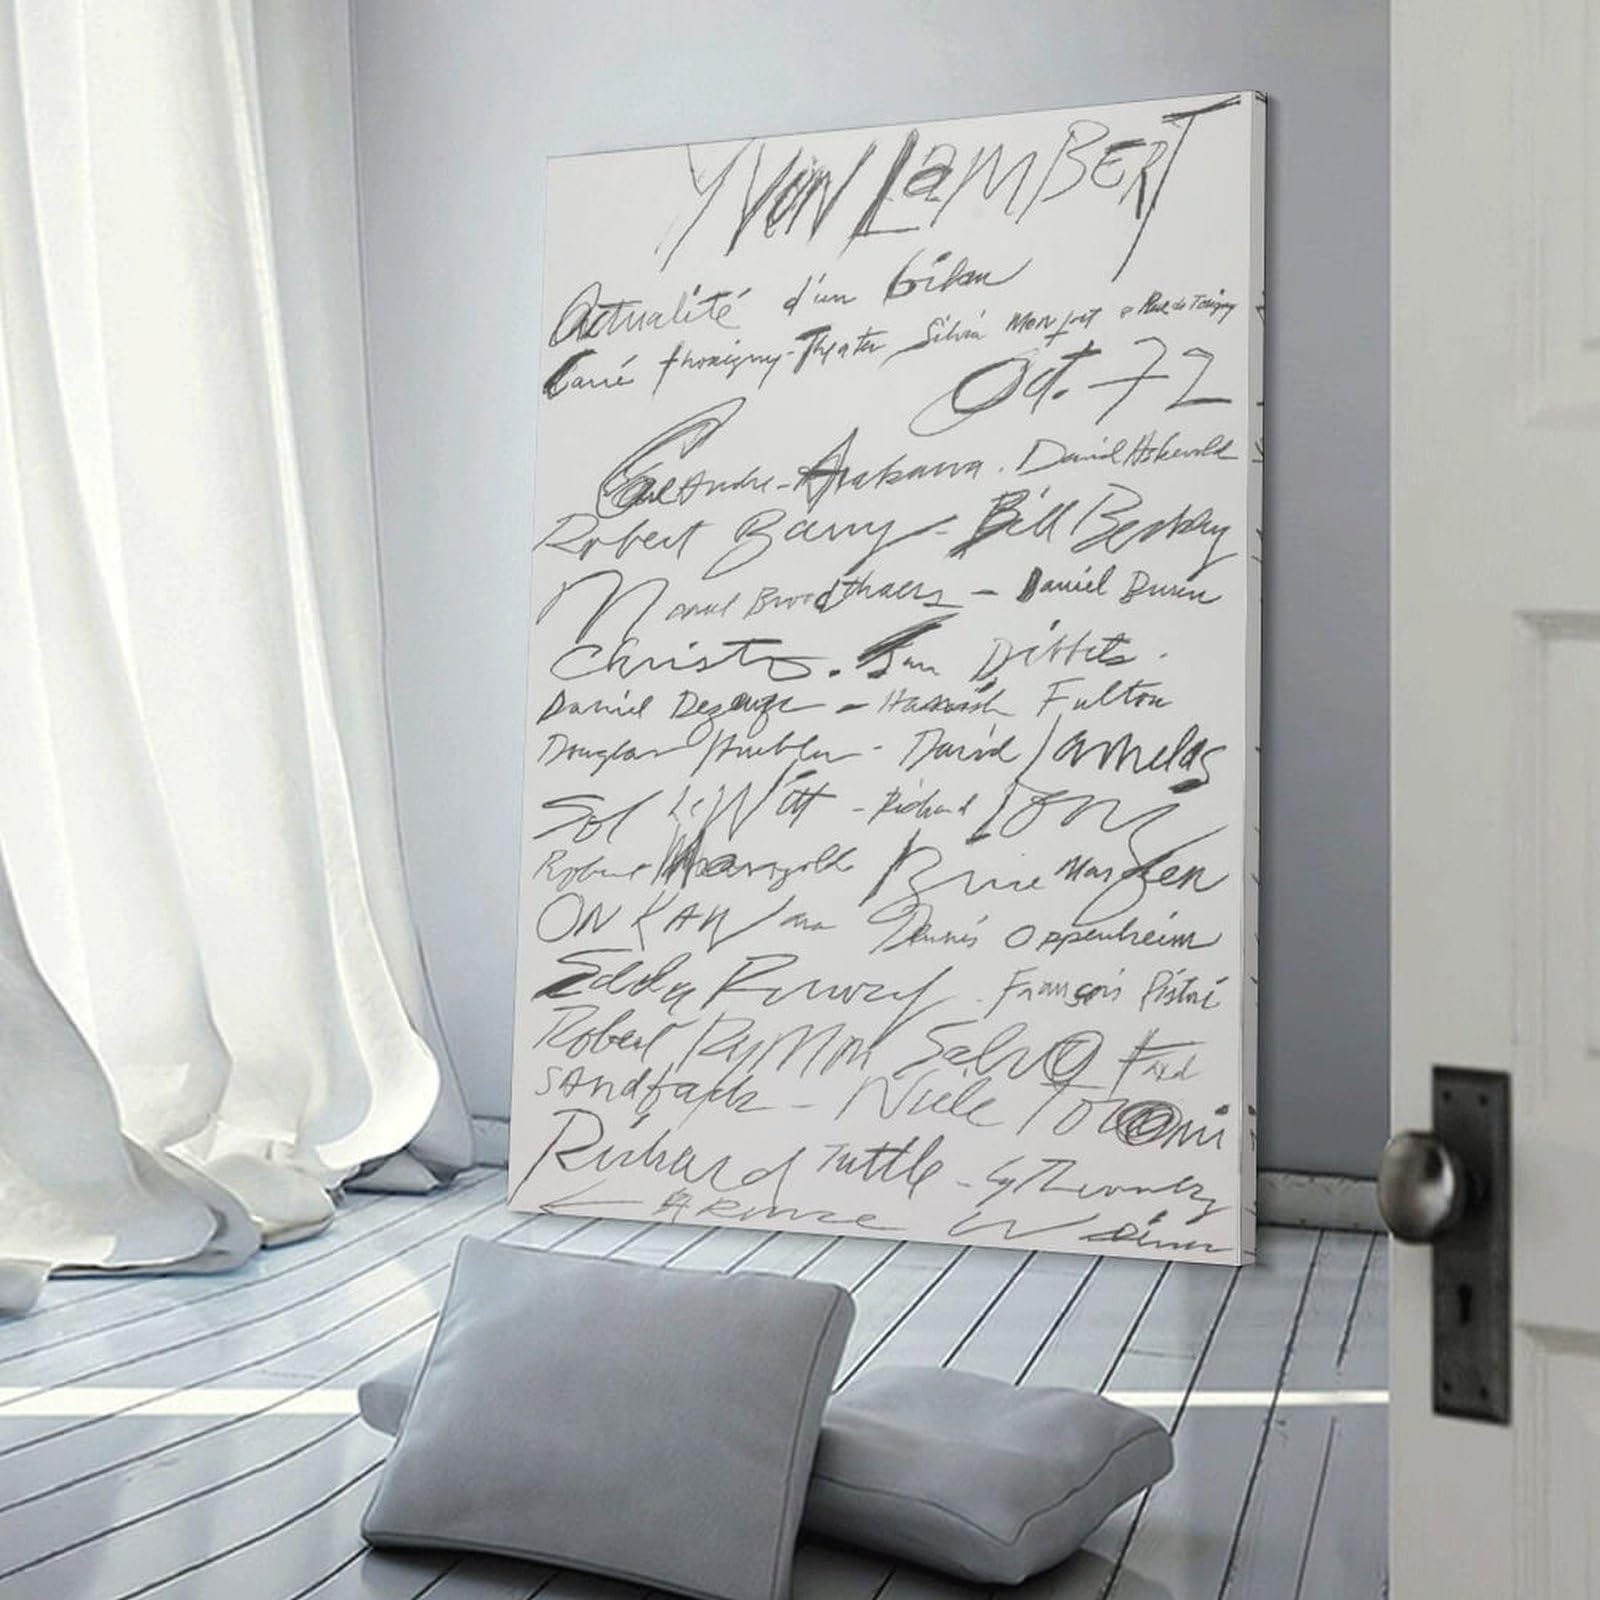 YVON LaMBERT
Actualité d'un bilan
Carré thorigny-Theater Silvia Monfort
Oct. 72
Carl Andre - Arakawa. David Askevold
Robert Barry - Bill Beckley
Marcel Broodthaers - Daniel Buren
Christo. Jan Dibbets.
Daniel Dezeuze - Hamish Fulton
Douglas Huebler - David Lamelas
Sol LeWitt - Richard Long
Robert Mangold Brice Marden
ON KAWara Dennis Oppenheim
Edda Renouf. François Ristori
Robert RyMan SalvO Fred
SAndback - Niele Toroni
Richard Tuttle - Cy Twombly
Weiner